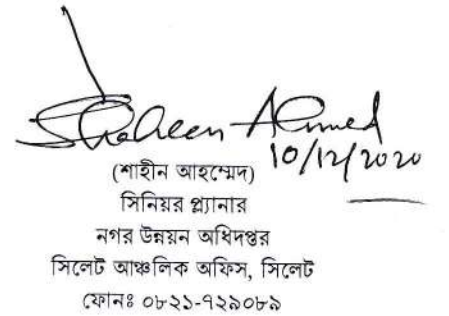 Shaheen Ahmed
10/12/2020
(শাহীন আহম্মেদ)
সিনিয়র প্ল্যানার
নগর উন্নয়ন অধিদপ্তর
সিলেট আঞ্চলিক অফিস, সিলেট
ফোনঃ ০৮২১-৭২৯০৮৯